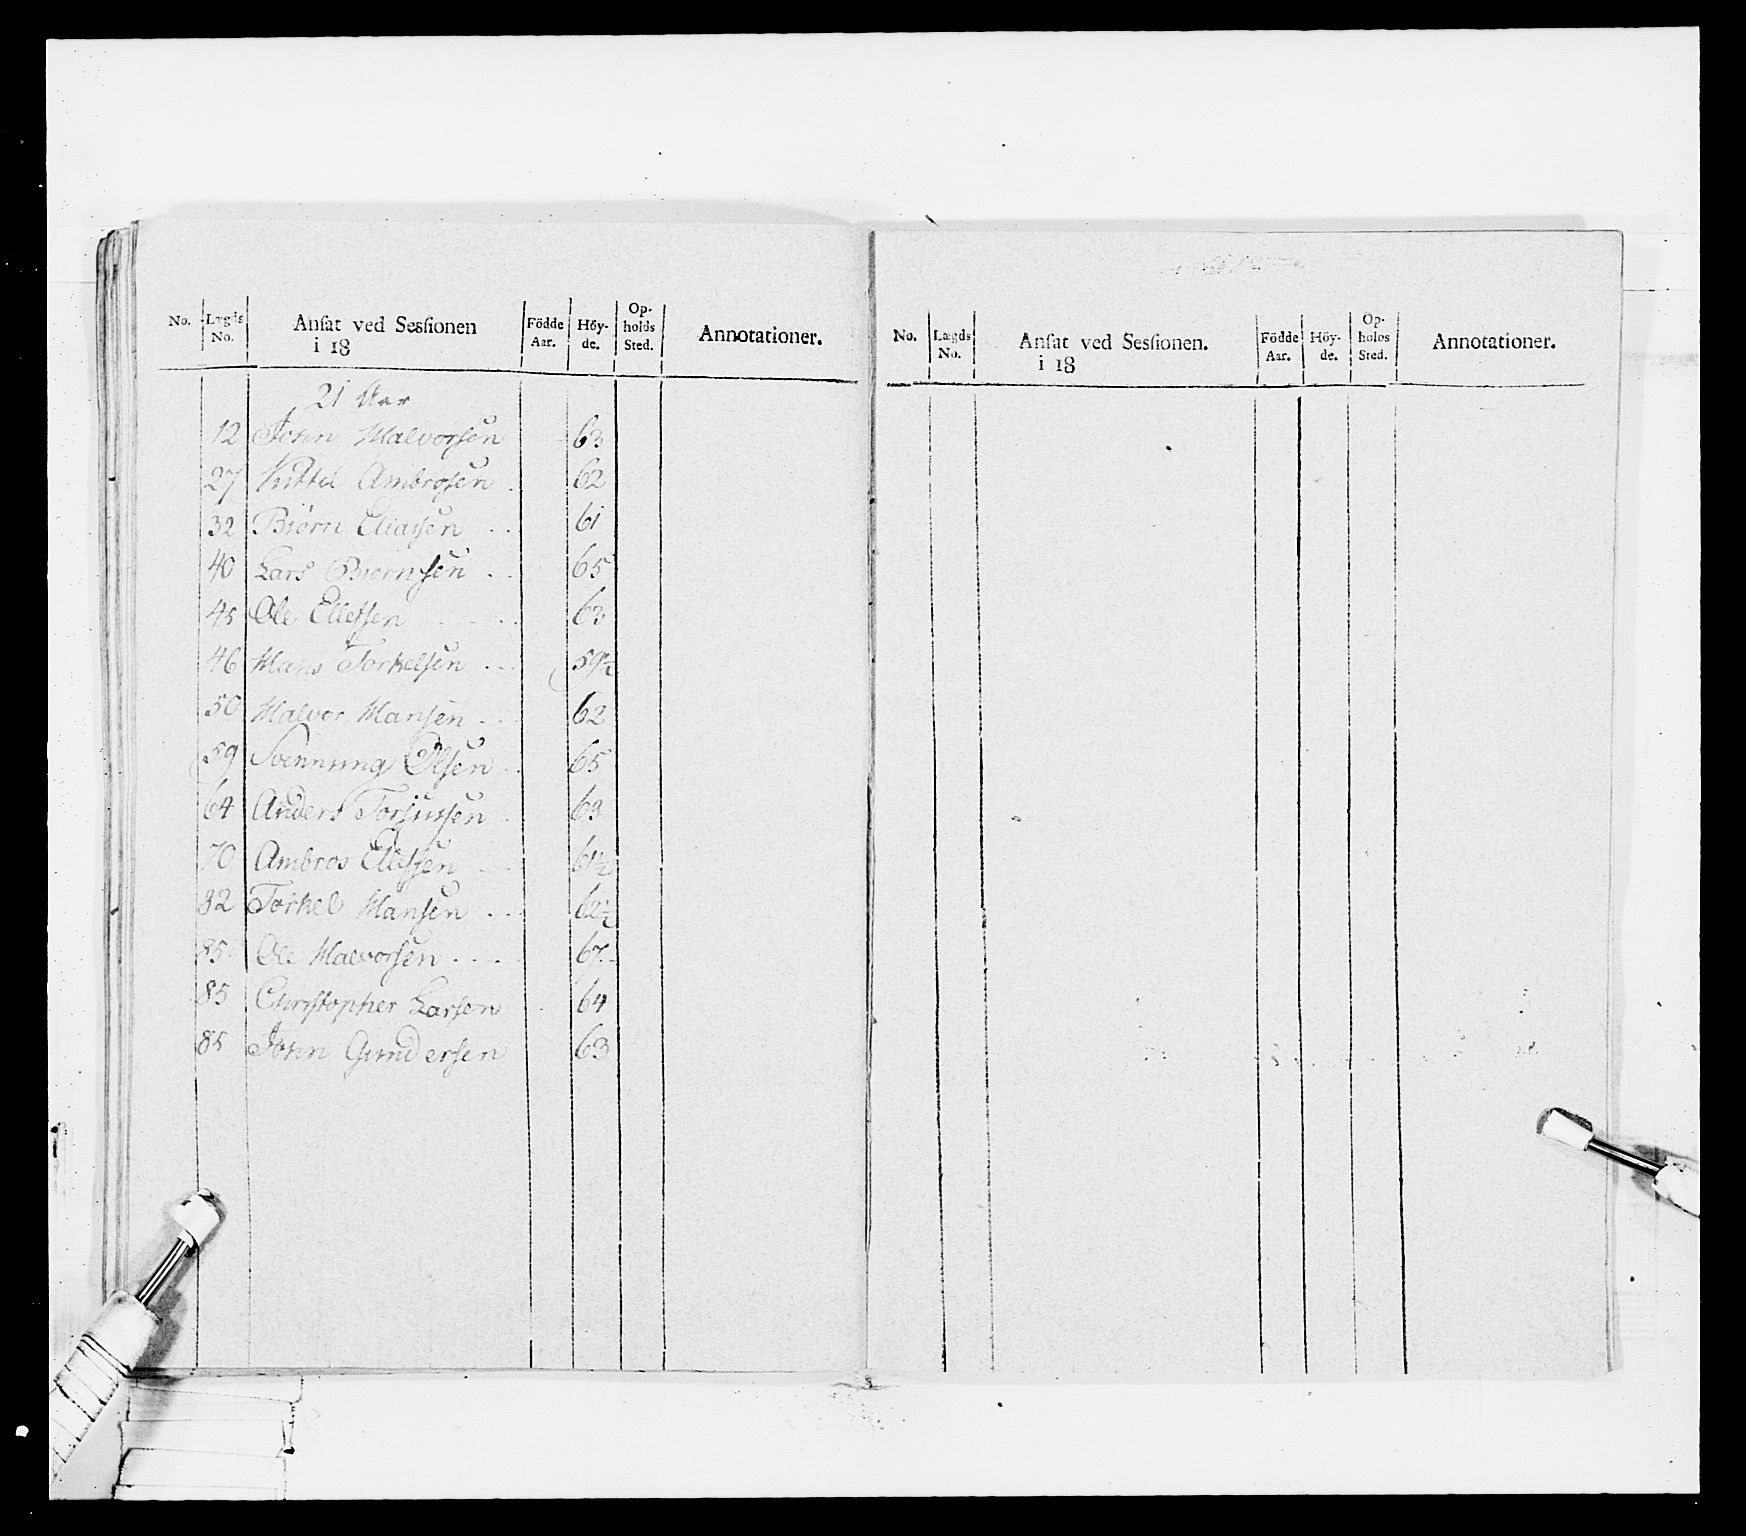 No. Lægds No. Ansat ved Sessionen i 18 Födde Aar. Höyde. Opholds Sted. Annotationer.
21 Aar
12 John Halvorsen 63
27 Kittil Ambrosen 62
32 Biörn Eliassen 61
40 Lars Biørnsen 65
45 Ole Ellefsen 63
46 Hans Torkelsen 59½
50 Halvor Hansen 62
59 Svennung Olsen 65
64 Anders Torjussen 63
70 Ambros Ellefsen 61½
82 Torkel Hansen 62½
85 Ole Halvorsen 67
85 Christopher Larsen 64
85 John Gundersen 63
No. Lægds No. Ansat ved Sessionen. i 18 Födde Aar. Höyde. Opholds Sted. Annotationer.